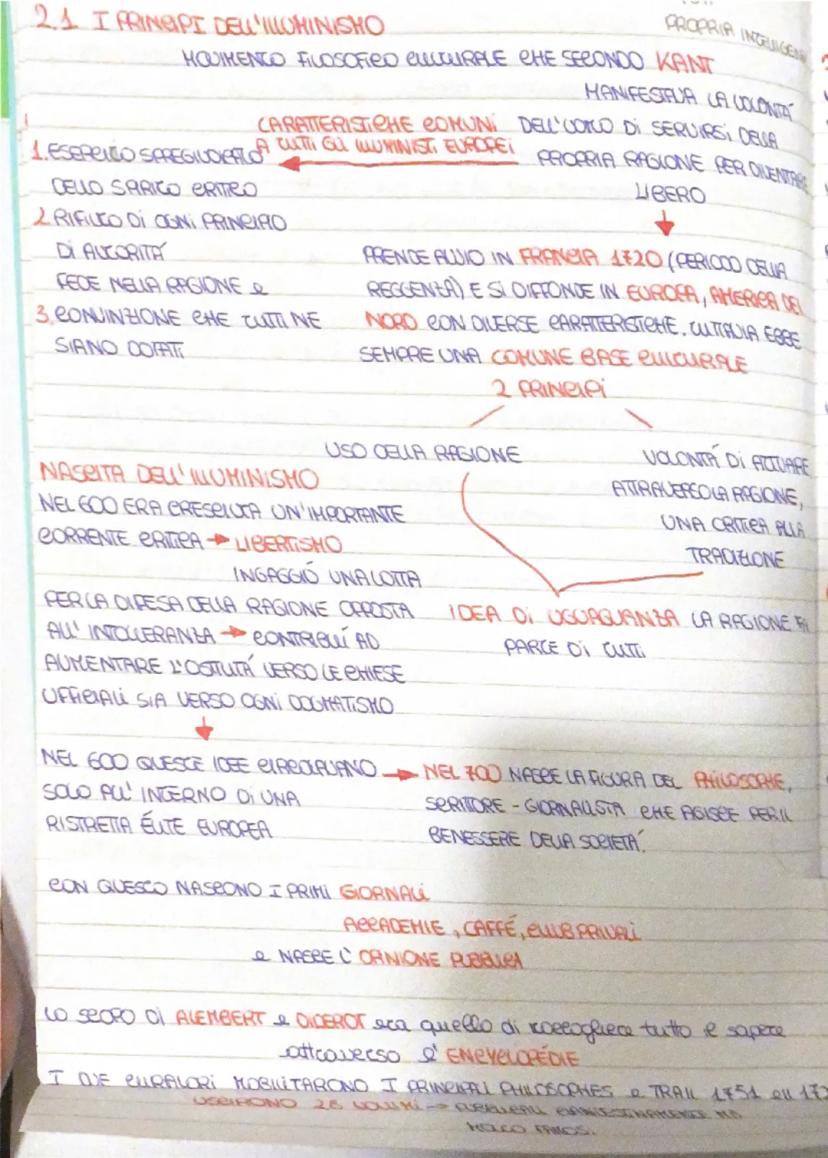 2.1 I PRINCIPI DELL'ILLUMINISMO
PROPRIA
MOVIMENTO FILOSOFICO CULTURALE CHE SECONDO KANT
MANIFESTAVA LA VOLONTÀ
DELL'UOMO DI SERVIRSI DELLA
PROPRIA RAGIONE PER DIVENTARE
LIBERO
CARATTERISTICHE COMUNI
A TUTTI GLI ILLUMINISTI EUROPEI
1. ESERCIZIO SPREGIUDICATO
DELLO SPIRITO CRITICO
2. RIFIUTO DI OGNI PRINCIPIO
DI AUTORITÀ
FEDE NELLA RAGIONE e
3. CONVINZIONE CHE TUTTI NE
SIANO DOTATI
PRENDE AVVIO IN FRANCIA 1720 (PERIODO DELLA
REGGENZA) E SI DIFFONDE IN EUROPA, AMERICA DEL
NORD CON DIVERSE CARATTERISTICHE. TUTTAVIA EBBE
SEMPRE UNA COMUNE BASE CULTURALE
2 PRINCIPI
USO DELLA RAGIONE
VOLONTÀ DI ATTUARE
ATTRAVERSO LA RAGIONE,
UNA CRITICA ALLA
TRADIZIONE
IDEA DI UGUAGLIANZA LA RAGIONE FA
PARTE DI TUTTI
NASCITA DELL'ILLUMINISMO
NEL 600 ERA CRESCIUTA UN'IMPORTANTE
CORRENTE CRITICA → LIBERTISMO
INGAGGIÒ UNA LOTTA
PER LA DIFESA DELLA RAGIONE OPPOSTA
ALL'INTOLLERANZA → CONTRIBUÌ AD
AUMENTARE L'OSTILITÀ VERSO LE CHIESE
UFFICIALI SIA VERSO OGNI DOGMATISMO
NEL 600 QUESTE IDEE CIRCOLAVANO
SOLO ALL'INTERNO DI UNA
RISTRETTA ÉLITE EUROPEA
→ NEL 700 NASCE LA FIGURA DEL PHILOSOPHE,
SCRITTORE - GIORNALISTA CHE AGISCE PER IL
BENESSERE DELLA SOCIETÀ.
CON QUESTO NASCONO I PRIMI GIORNALI
ACCADEMIE, CAFFÉ, CLUB PRIVATI
e NASCE L'OPINIONE PUBBLICA
LO SCOPO DI ALEMBERT e DIDEROT era quello di raccogliere tutto il sapere
attraverso l'ENCYCLOPÉDIE
I DUE CURATORI MOBILITARONO I PRINCIPALI PHILOSOPHES e TRA IL 1751
USCIRONO 28 VOLUMI → PUBBLICATI CLANDESTINAMENTE MA
MOLTO FAMOSI.